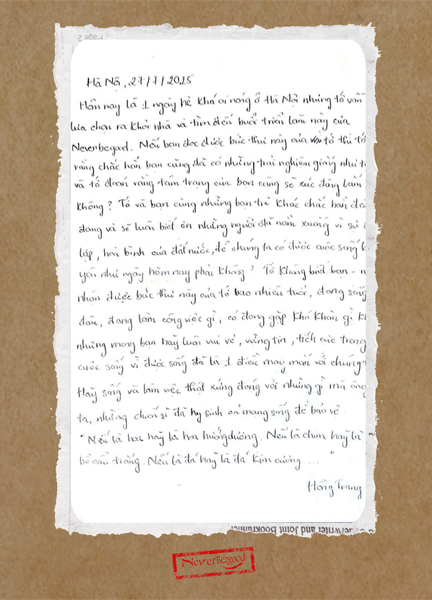 Hà Nội, 27/7/2025
Hôm nay là 1 ngày hè khá oi nóng ở Hà Nội nhưng tớ vẫn
lựa chọn ra khỏi nhà và tìm đến buổi triển lãm này của
Neverbegood. Nếu bạn đọc được bức thư này của tớ thì tớ
rằng chắc hẳn bạn cũng đã có những trải nghiệm giống như t
và tớ đoán rằng tâm trạng của bạn cũng sẽ xúc động lắm
không? Tớ và bạn cùng những bạn trẻ khác chắc bạn đã
đang và sẽ luôn biết ơn những người đã nằm xuống vì sự
lập, hoà bình của đất nước, để chúng ta có được cuộc sống
yên như ngày hôm nay phải không? Tớ không biết bạn - n
nhận được bức thư này của tớ bao nhiêu tuổi, đang sống
đâu, đang làm công việc gì, có đang gặp khó khăn gì k
nhưng mong bạn hãy luôn vui vẻ, vững tin, tích cực trong
cuộc sống vì được sống đã là 1 điều may mắn với chúng t
Hãy sống và làm việc thật xứng đáng với những gì mà ông
ta, những chiến sĩ đã hy sinh cả mạng sống để bảo vệ.
"Nếu là hoa hãy là hoa hướng dương. Nếu là chim hãy là
bồ câu trắng. Nếu là đá hãy là đá kim cương ..."
Hồng Trang
derwriter and Joint bookrunner
Neverbegood